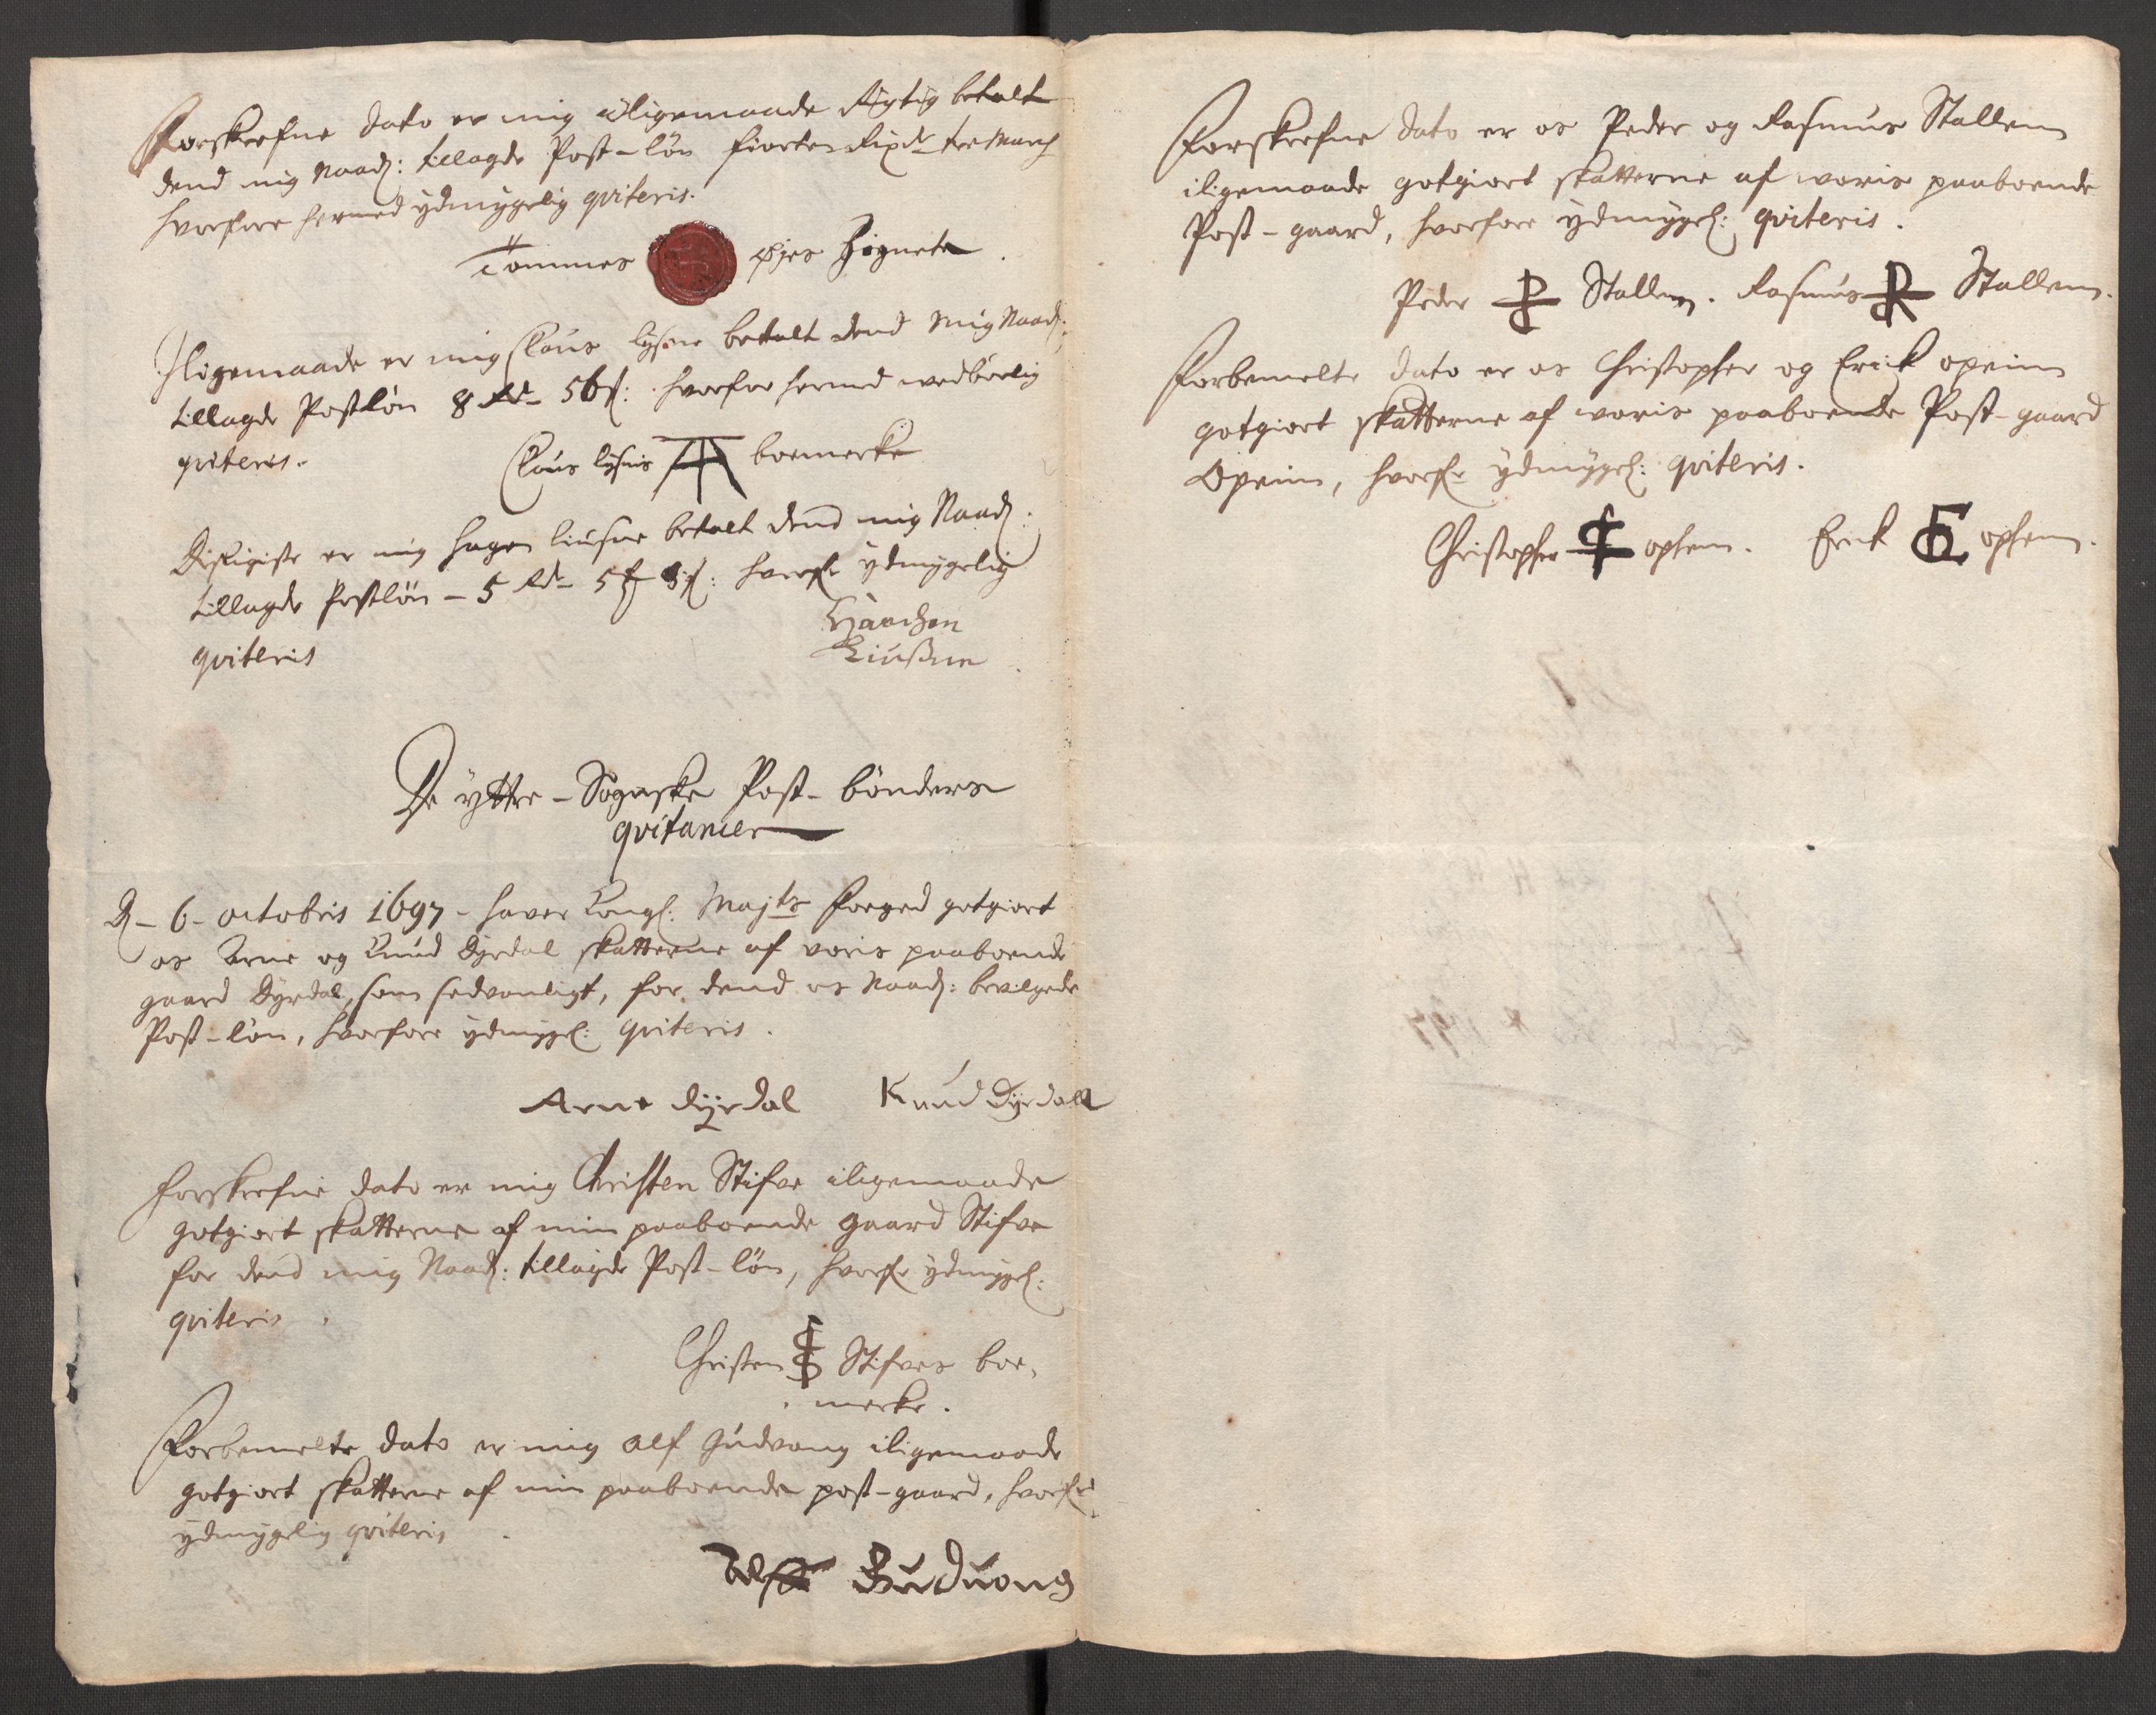 Forskrefne dato er mig iligemaade Rigtig betalt
dend mig Naad: tillagde Post-lön fiorten Rixdr tre March
hvorfore hermed ydmygelig qviteris.
Tommes Øies Zignete.
Iligemaade er mig Claus lysne betalt dend mig Naad:
tillagde Postlön 8 Rdr 56 s: hvorfor hermed wedbörlig
qviteris.
Claus lysnis boemerke
Disligiste er mig Hagen liusne betalt dend mig Naad:
tillagde Postlön - 5 Rdr 5 mk 8 s: hvorfr ydmygelig
qviteris
Haachen
Liusne
De yttre-Sognske Post-bönders
qvitancier
D - 6 - octobris 1697 - haver Kongl: Majts foged gotgiort
os Arne og Knud Dyrdal skatterne af voris paaboende
gaard Dyrdal, som sedvanligt, for dend os Naad: bevilgede
Post-lön, hvorfore ydmygel: qviteris.
Arne dyrdal Knud Dyrdall
Forskrefne dato er mig Christen Stifve iligemaade
gotgiort skatterne af min paaboende gaard Stifve
for dend mig Naad: tillagde Post-lön, hvorfr ydmygel:
qviteris.
Christen Stifves boe,
merke.
Forbemelte dato er mig Alf Gudvang iligemaade
gotgiort skatterne af min paaboende post-gaard, hvorfre
ydmygelig qviteris
Alff Guduong
Forskrefne dato er os Peder og Rasmus Stallem
iligemaade gotgiort skatterne af woris paaboende
Post-gaard, hvorfore ydmygel: qviteris.
Peder P Stallem. Rasmus R Stallem.
Forbemelte dato er os Christopher og Erick opeim
gotgiort skatterne af woris paaboende Post-gaard
Opeim, hvorfr ydmygel: qviteris.
Christopher ophem. Erick E ophem.